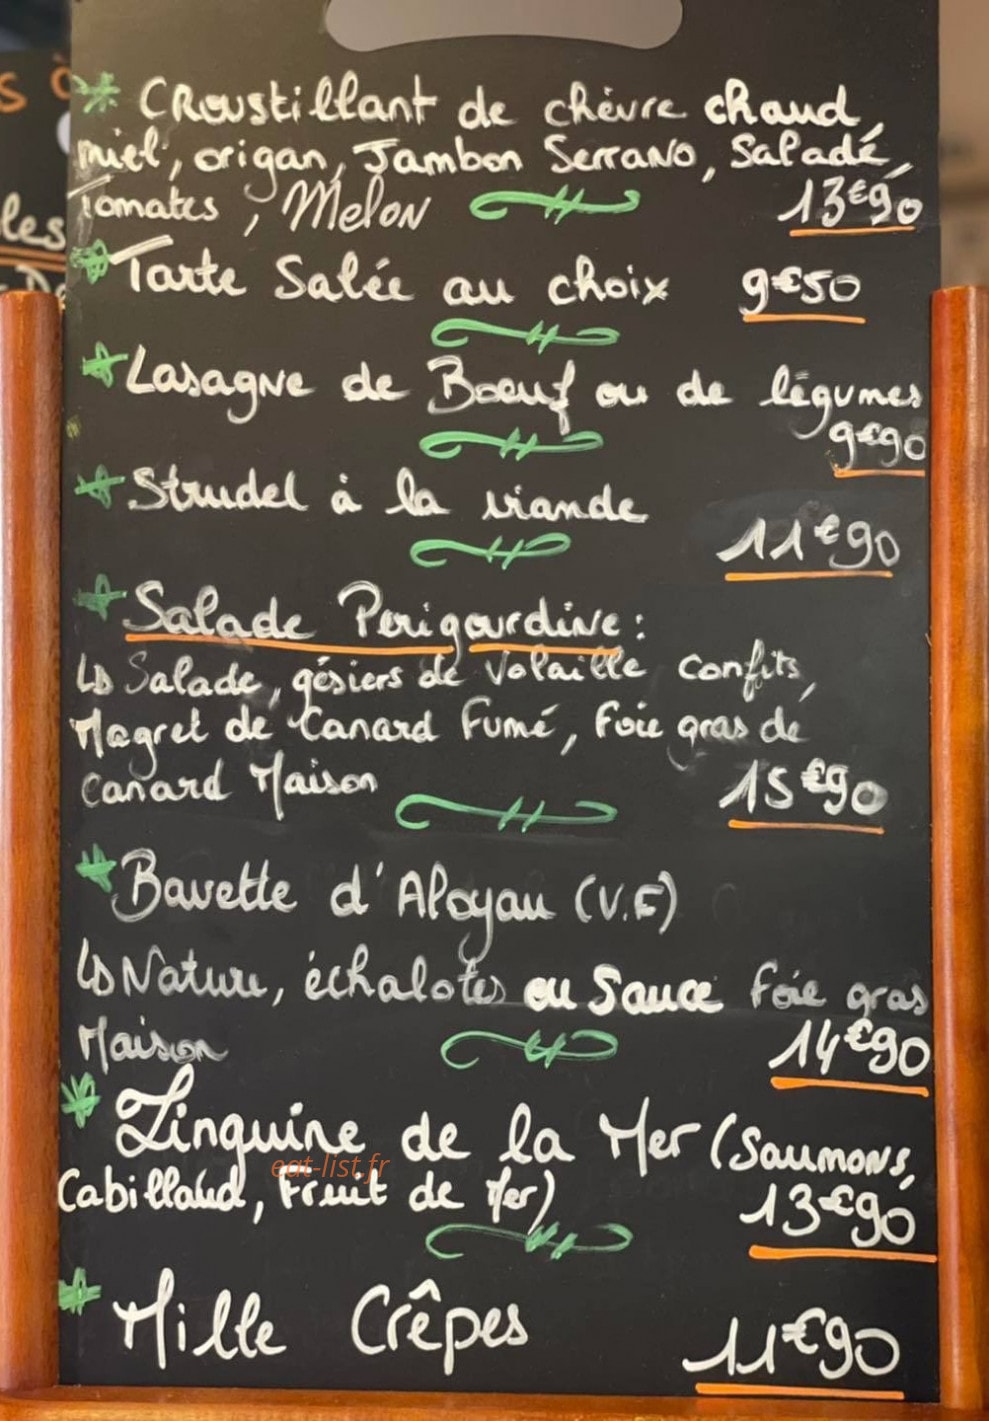 s à
les
De
* Croustillant de chèvre chaud,
miel, origan, Jambon Serrano, Salade,
Tomates, Melon 13€90
* Tarte Salée au choix 9€50
* Lasagne de Boeuf ou de légumes
9€90
* Strudel à la viande
11€90
* Salade Perigourdine :
↳ Salade, gésiers de Volaille confits,
Magret de Canard Fumé, Foie gras de
canard Maison 15€90
* Bavette d'Aloyau (V.F)
↳ Nature, échalotes ou Sauce Foie gras
Maison 14€90
* Linguine de la Mer (Saumons,
eat-list.fr
Cabillaud, Fruit de Mer) 13€90
* Mille Crêpes 11€90